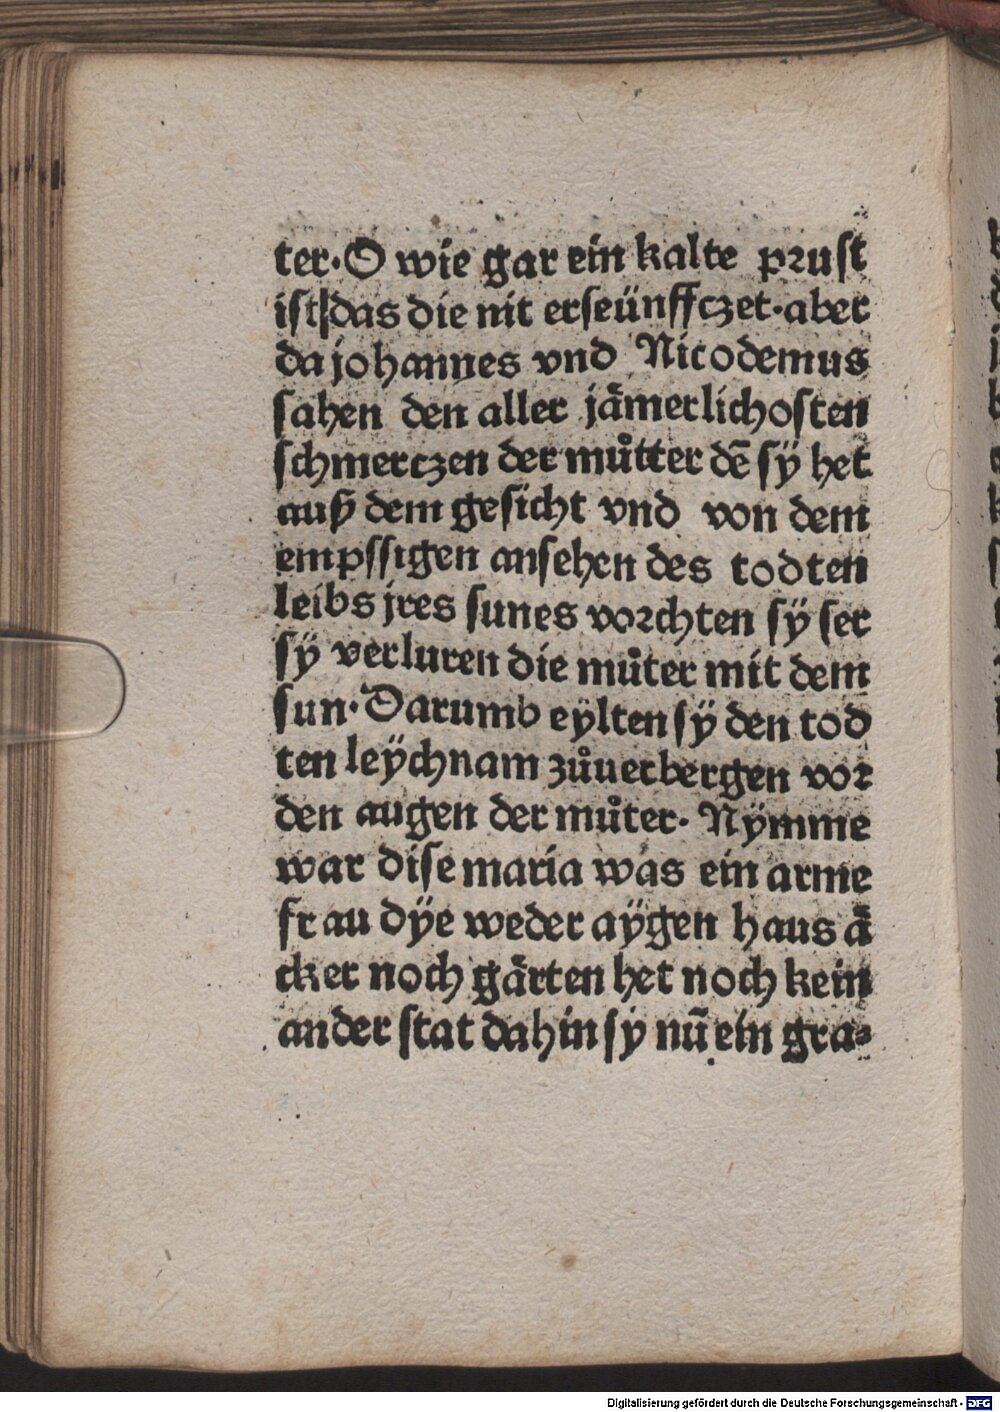 ter·O wie gar ein kalte prust
ist/das die nit erseünffczet·aber
da johannes vnd Nicodemus
sahen den aller jämerlichosten
schmerczen der můtter dē sÿ het
auß dem gesicht vnd von dem
empssigen ansehen des todten
leibs jres sunes vorchten sÿ ser
sÿ verluren die můter mit dem
sun·Darumb eÿlten sÿ den tod
ten leÿchnam zůuerbergen vor
den augen der můter· Nÿmme
war dise maria was ein arme
frau dÿe weder aÿgen haus ä
cker noch gärten het noch kein
ander stat dahin sy nū ein gra⸗
Digitalisierung gefördert durch die Deutsche Forschungsgemeinschaft - DFG